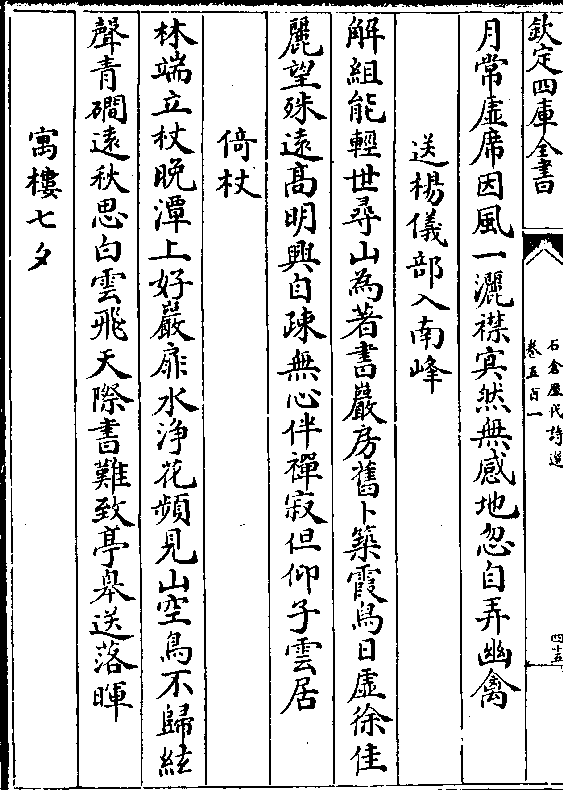 欽定四庫全書
石倉歷代詩選
卷五百一
四十五
月常虛席因風一灑襟寞然無感地忽自弄幽禽
送楊儀部入南峰
解組能輕世尋山為著書巖房舊卜築霞鳥日虛徐佳
麗望殊遠髙明興自疎無心伴禪寂但仰子雲居
倚杖
林端立杖晚潭上好巖扉水浄花頻見山空鳥不歸絃
聲青磵遠秋思白雲飛天際書難致亭皋送落暉
寓樓七夕